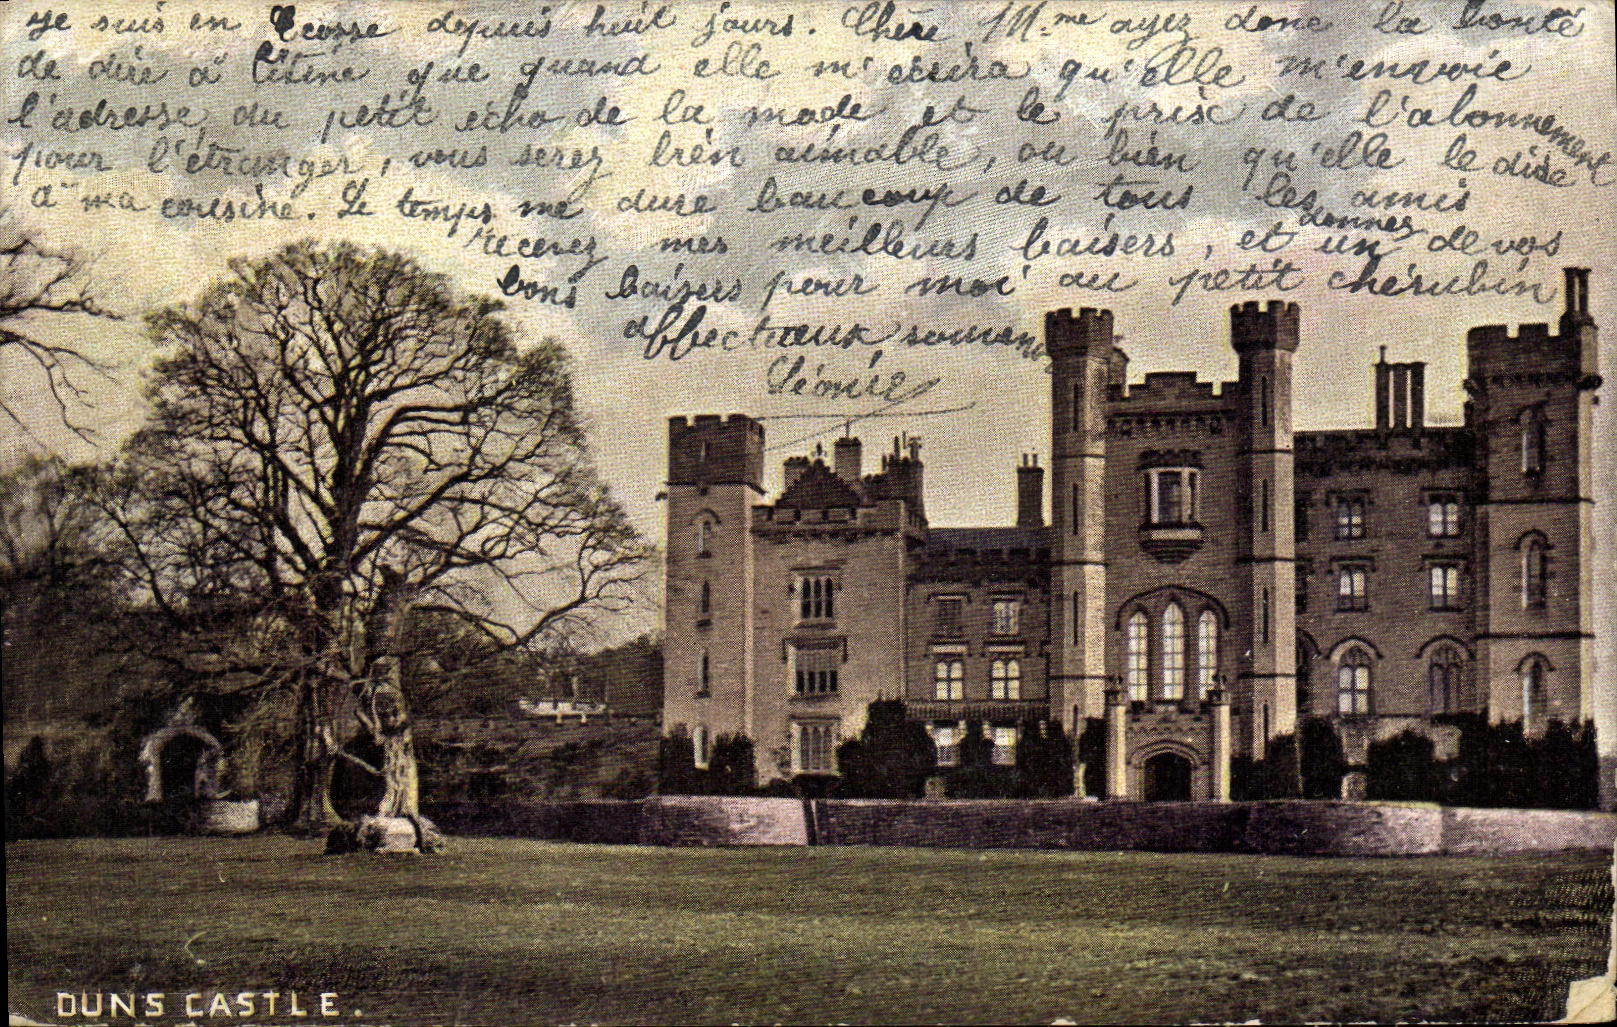 Je suis en Ecosse depuis huit jours. Chère Mme ayez donc la bonté
de dire à Titine que quand elle m'ecrira qu'elle m'envoie
l'adresse du petit écho de la mode et le prix de l'abonnement
pour l'étranger, vous serez bien aimable, ou bien qu'elle le dise
à ma cousine. Le temps me dure beaucoup de tous les amis
recevez mes meilleurs baisers, et donnez un de vos
bons baisers pour moi au petit chérubin
affectueux
Léonie
DUNS CASTLE.